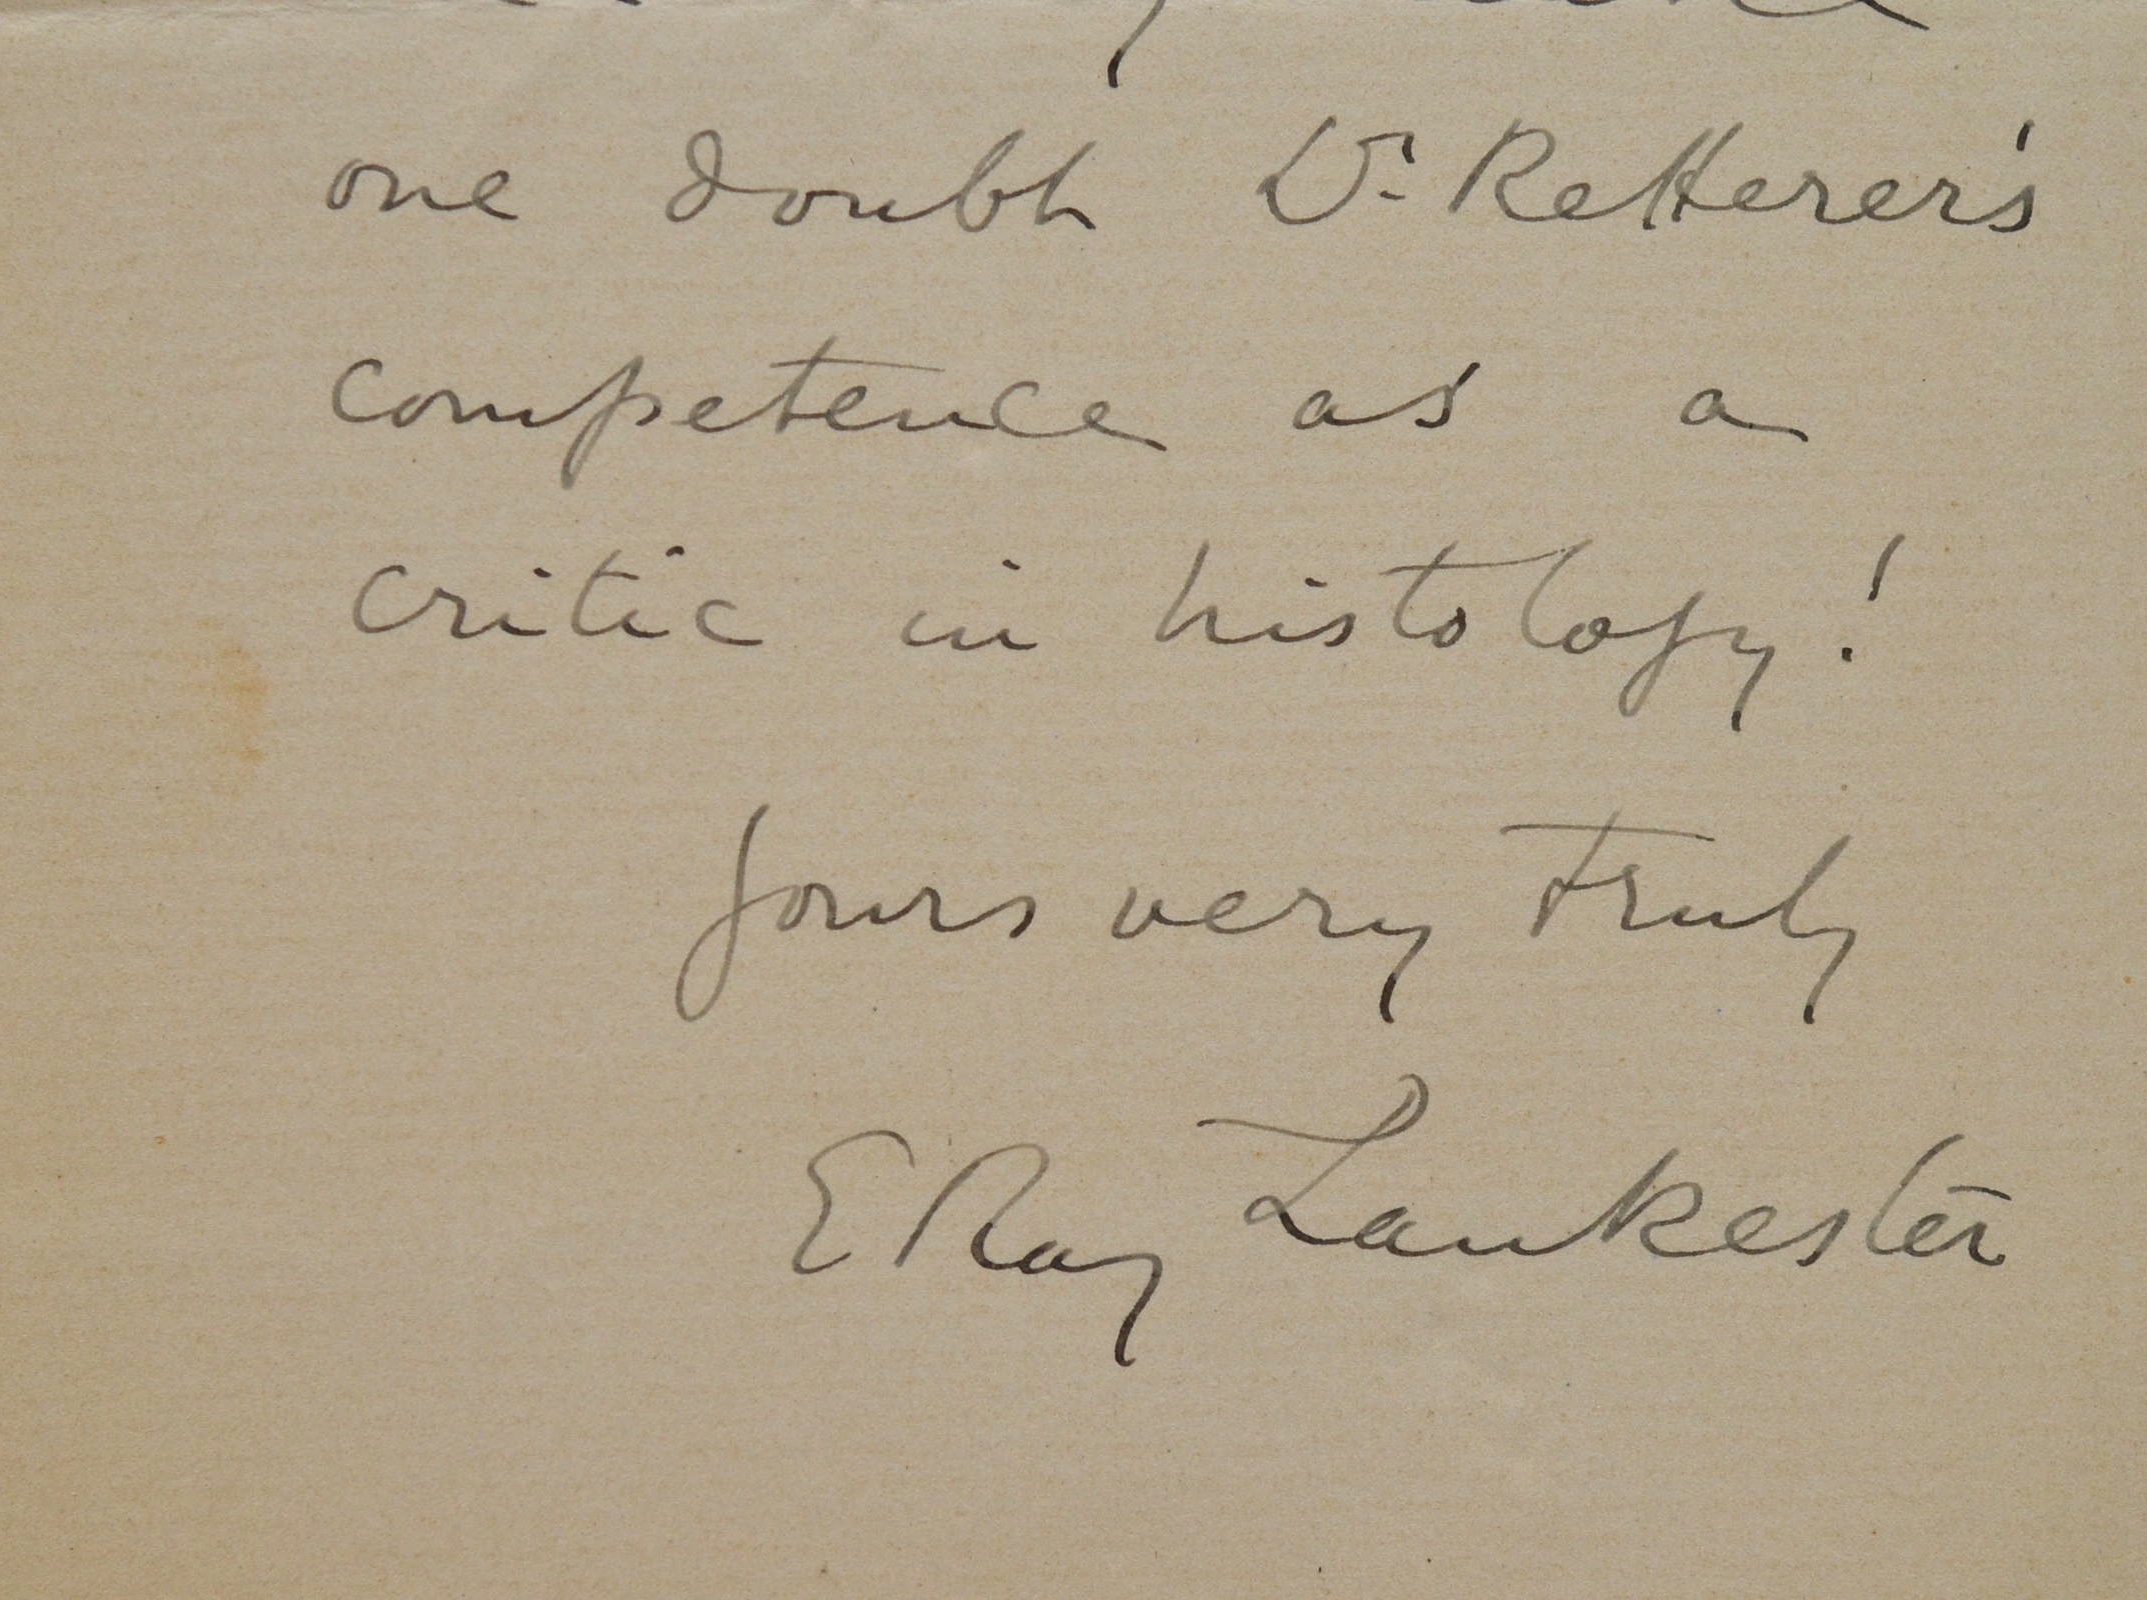 one doubt Dr. Retterer's
competence as a
critic in histology!
yours very truly
E Ray Lankester